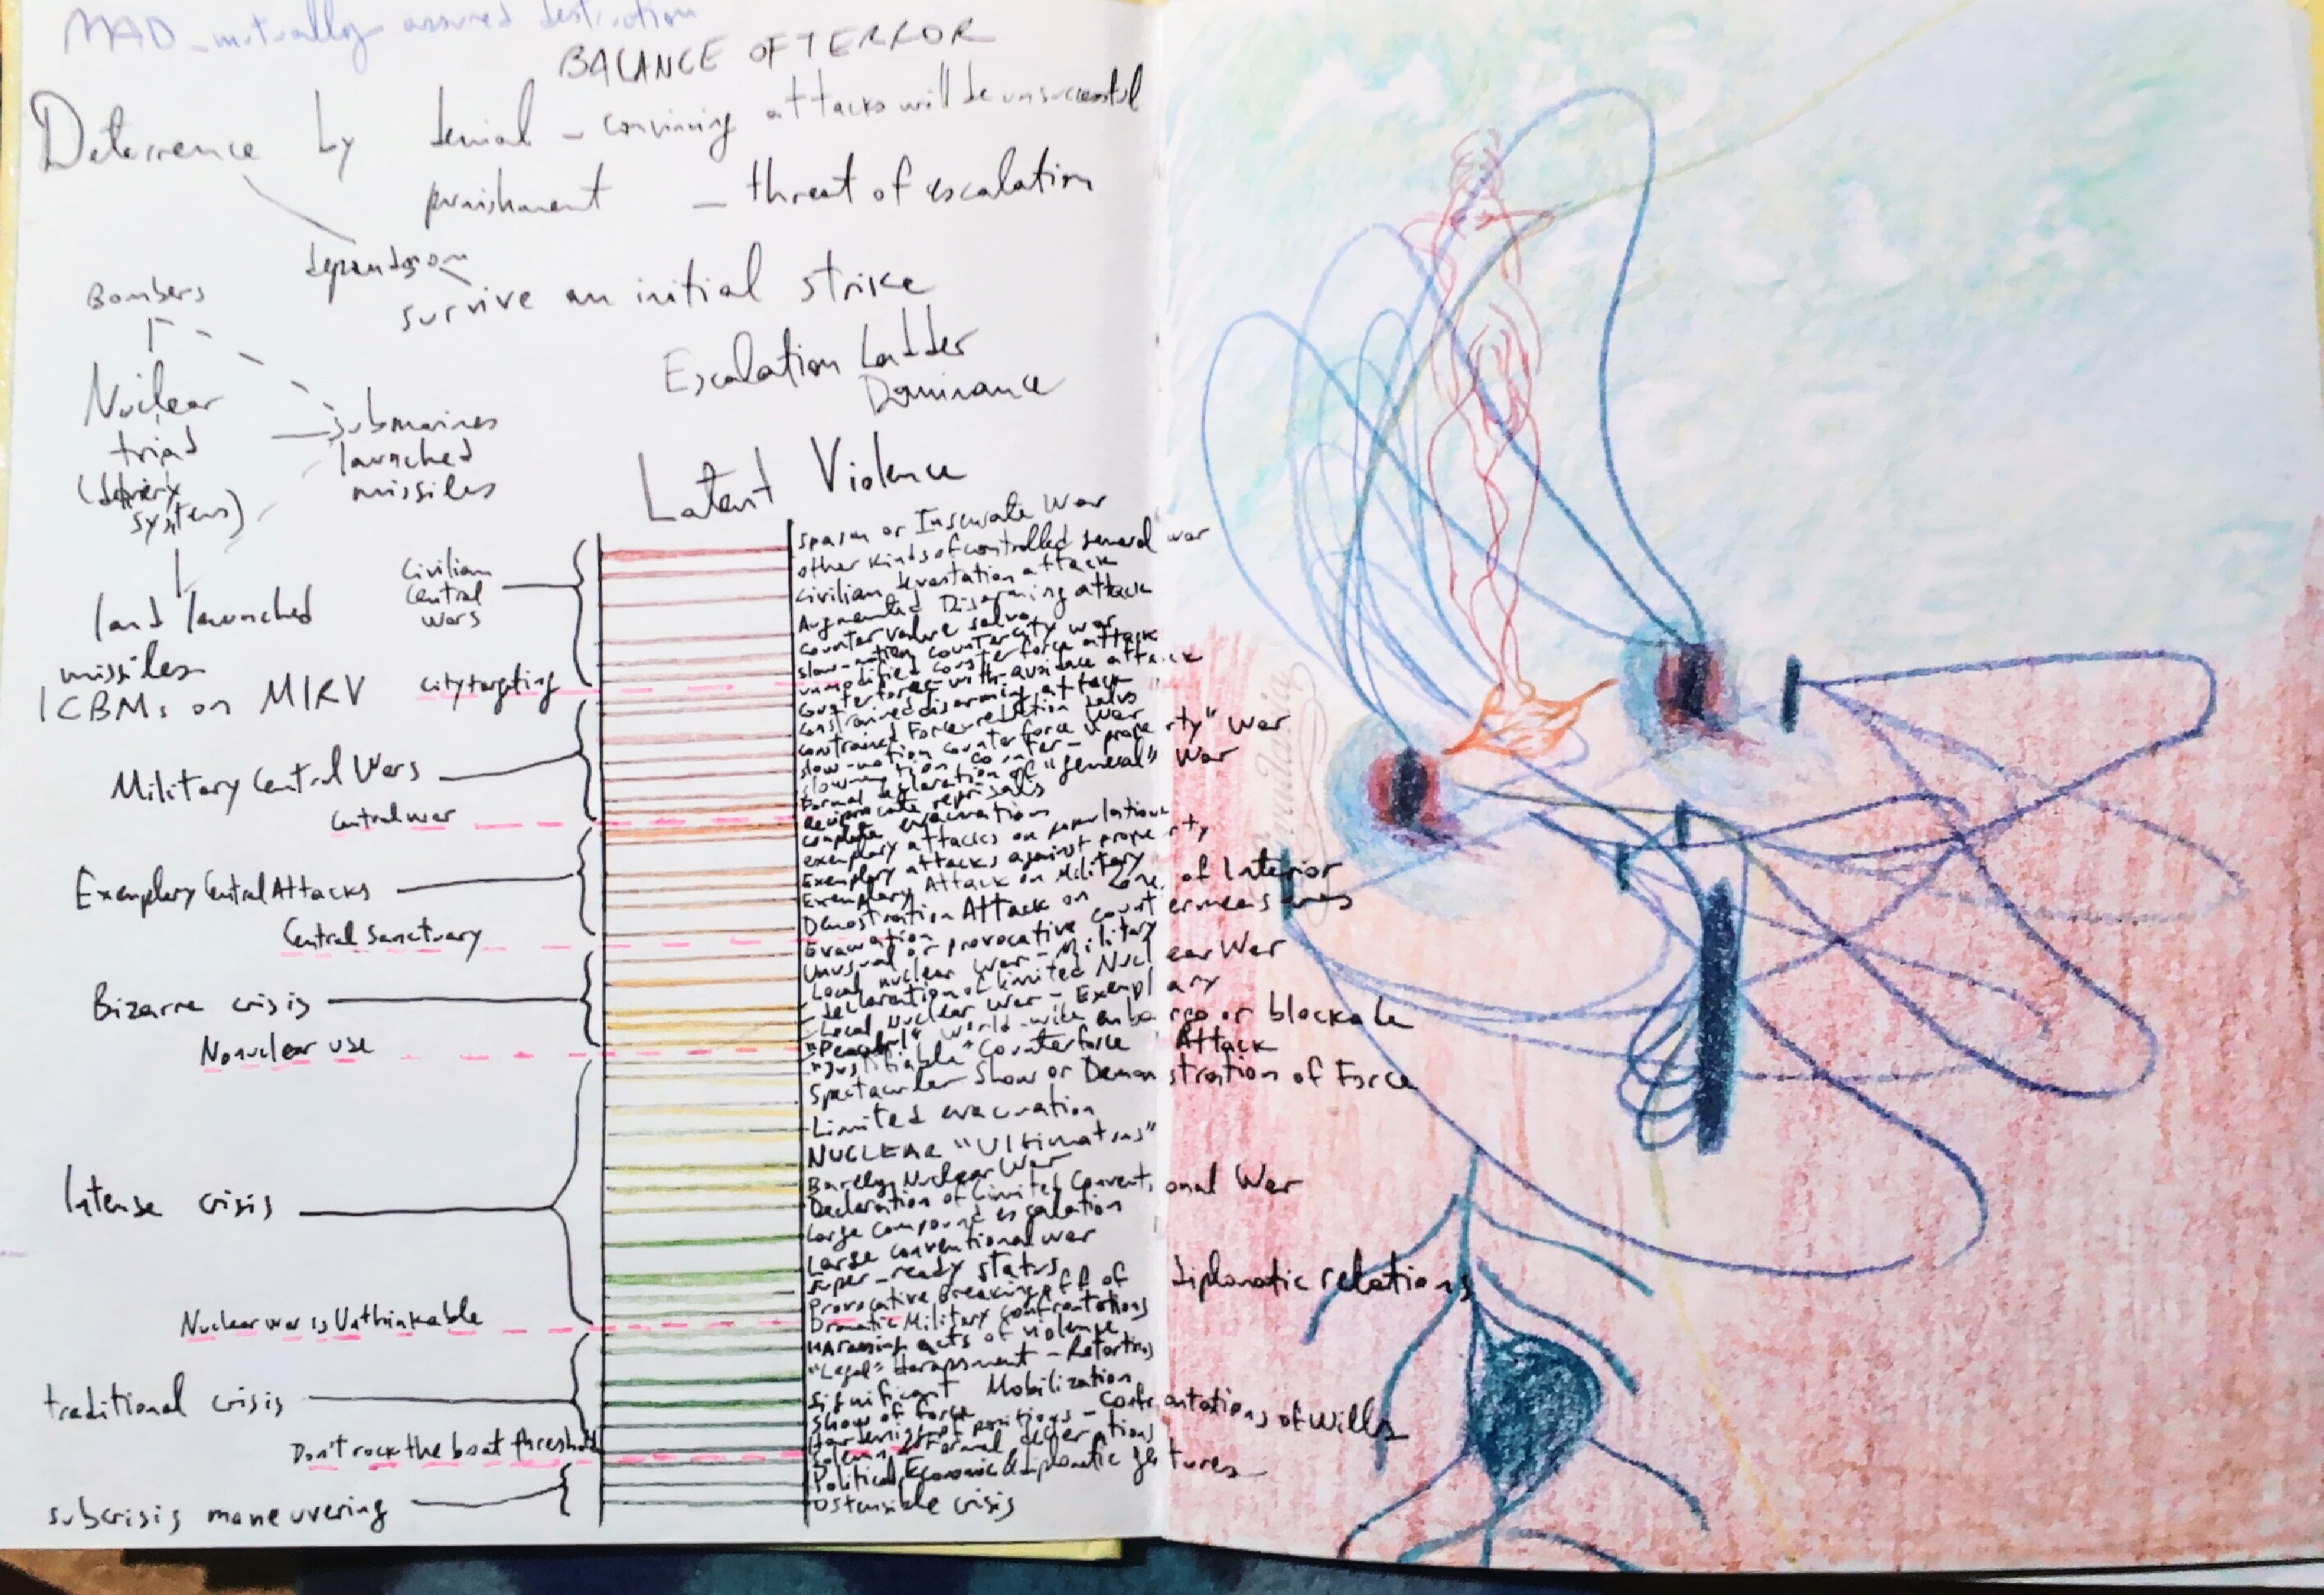 MAD - mutually assured destruction
BALANCE OF TERROR
Deterrence by denial - convining attacks will be unsuccessful
punishment - threat of escalation
depends on
survive an initial strike
Bombers
Nuclear
triad
(delivery
systems)
submarines
launched
missiles
land launched
missiles
ICBMs on MIRV
Escalation Ladder
Dominance
Latent Violence
Civilian
Central
Wars
City targeting
Military Central Wars
Central war
Exemplary Central Attacks
Central Sanctuary
Bizarre crisis
No nuclear use
Intense crisis
Nuclear war is Unthinkable
traditional crisis
Don't rock the boat threshold
subcrisis maneuvering
Spasm or Insensate War
other kinds of controlled general war
civilian devastation attack
Augmented Disarming attack
countervalue salvo
slow-motion countercity war
unmodified counterforce attack
Counterforce-with-avoidance attack
constrained disarming attack
constrained Force-reduction salvo
slow-motion counterforce war
slow-motion counter-"property" War
Formal declaration of "general" War
Reciprocate reprisals
complete evacuation
exemplary attacks on population
Exemplary attacks against property
Exemplary Attack on Military
Demostration Attack on Zone of Interior
Evacuation
Unusual or provocative countermeasures
Local nuclear War - Military
declaration of limited Nuclear War
Local Nuclear War - Exemplary
"Peaceful" world-wide embargo or blockade
"Justifiable" Counterforce Attack
Spectacular Show or Demonstration of Force
Limited evacuation
NUCLEAR "Ultimatums"
Barely Nuclear War
Declaration of Limited Conventional War
Large compound escalation
Large conventional war
super-ready status
Provocative Breaking off of diplomatic relations
Dramatic Military Confrontations
Harassing acts of violence
"Legal" Harassment - Retortions
Significant Mobilization
Show of force
Hardening of positions - confrontations of wills
Solemn & Formal declarations
Political, Economic & diplomatic gestures
Ostensible crisis